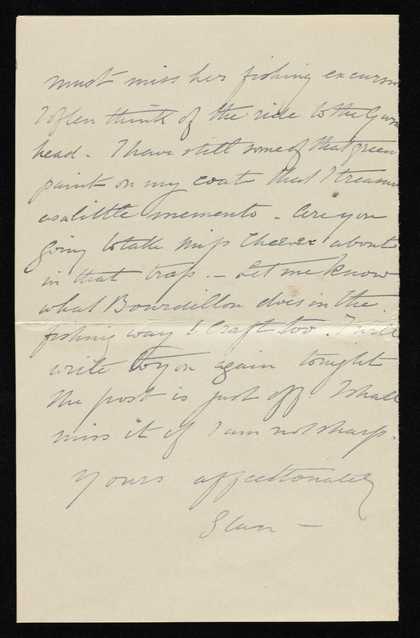 must miss her fishing excursn
I often think of the ride to the Gurn
head. I have still some of that green
paint on my coat that I treasur
as a little memento. Are you
going to take Miss about
in that trap. - Let me know
what Bourdillon does in the
fishing way & Craft too. I will
write to you again tonight
The post is just off I shall
miss it if I am not sharp.
Yours affectionately